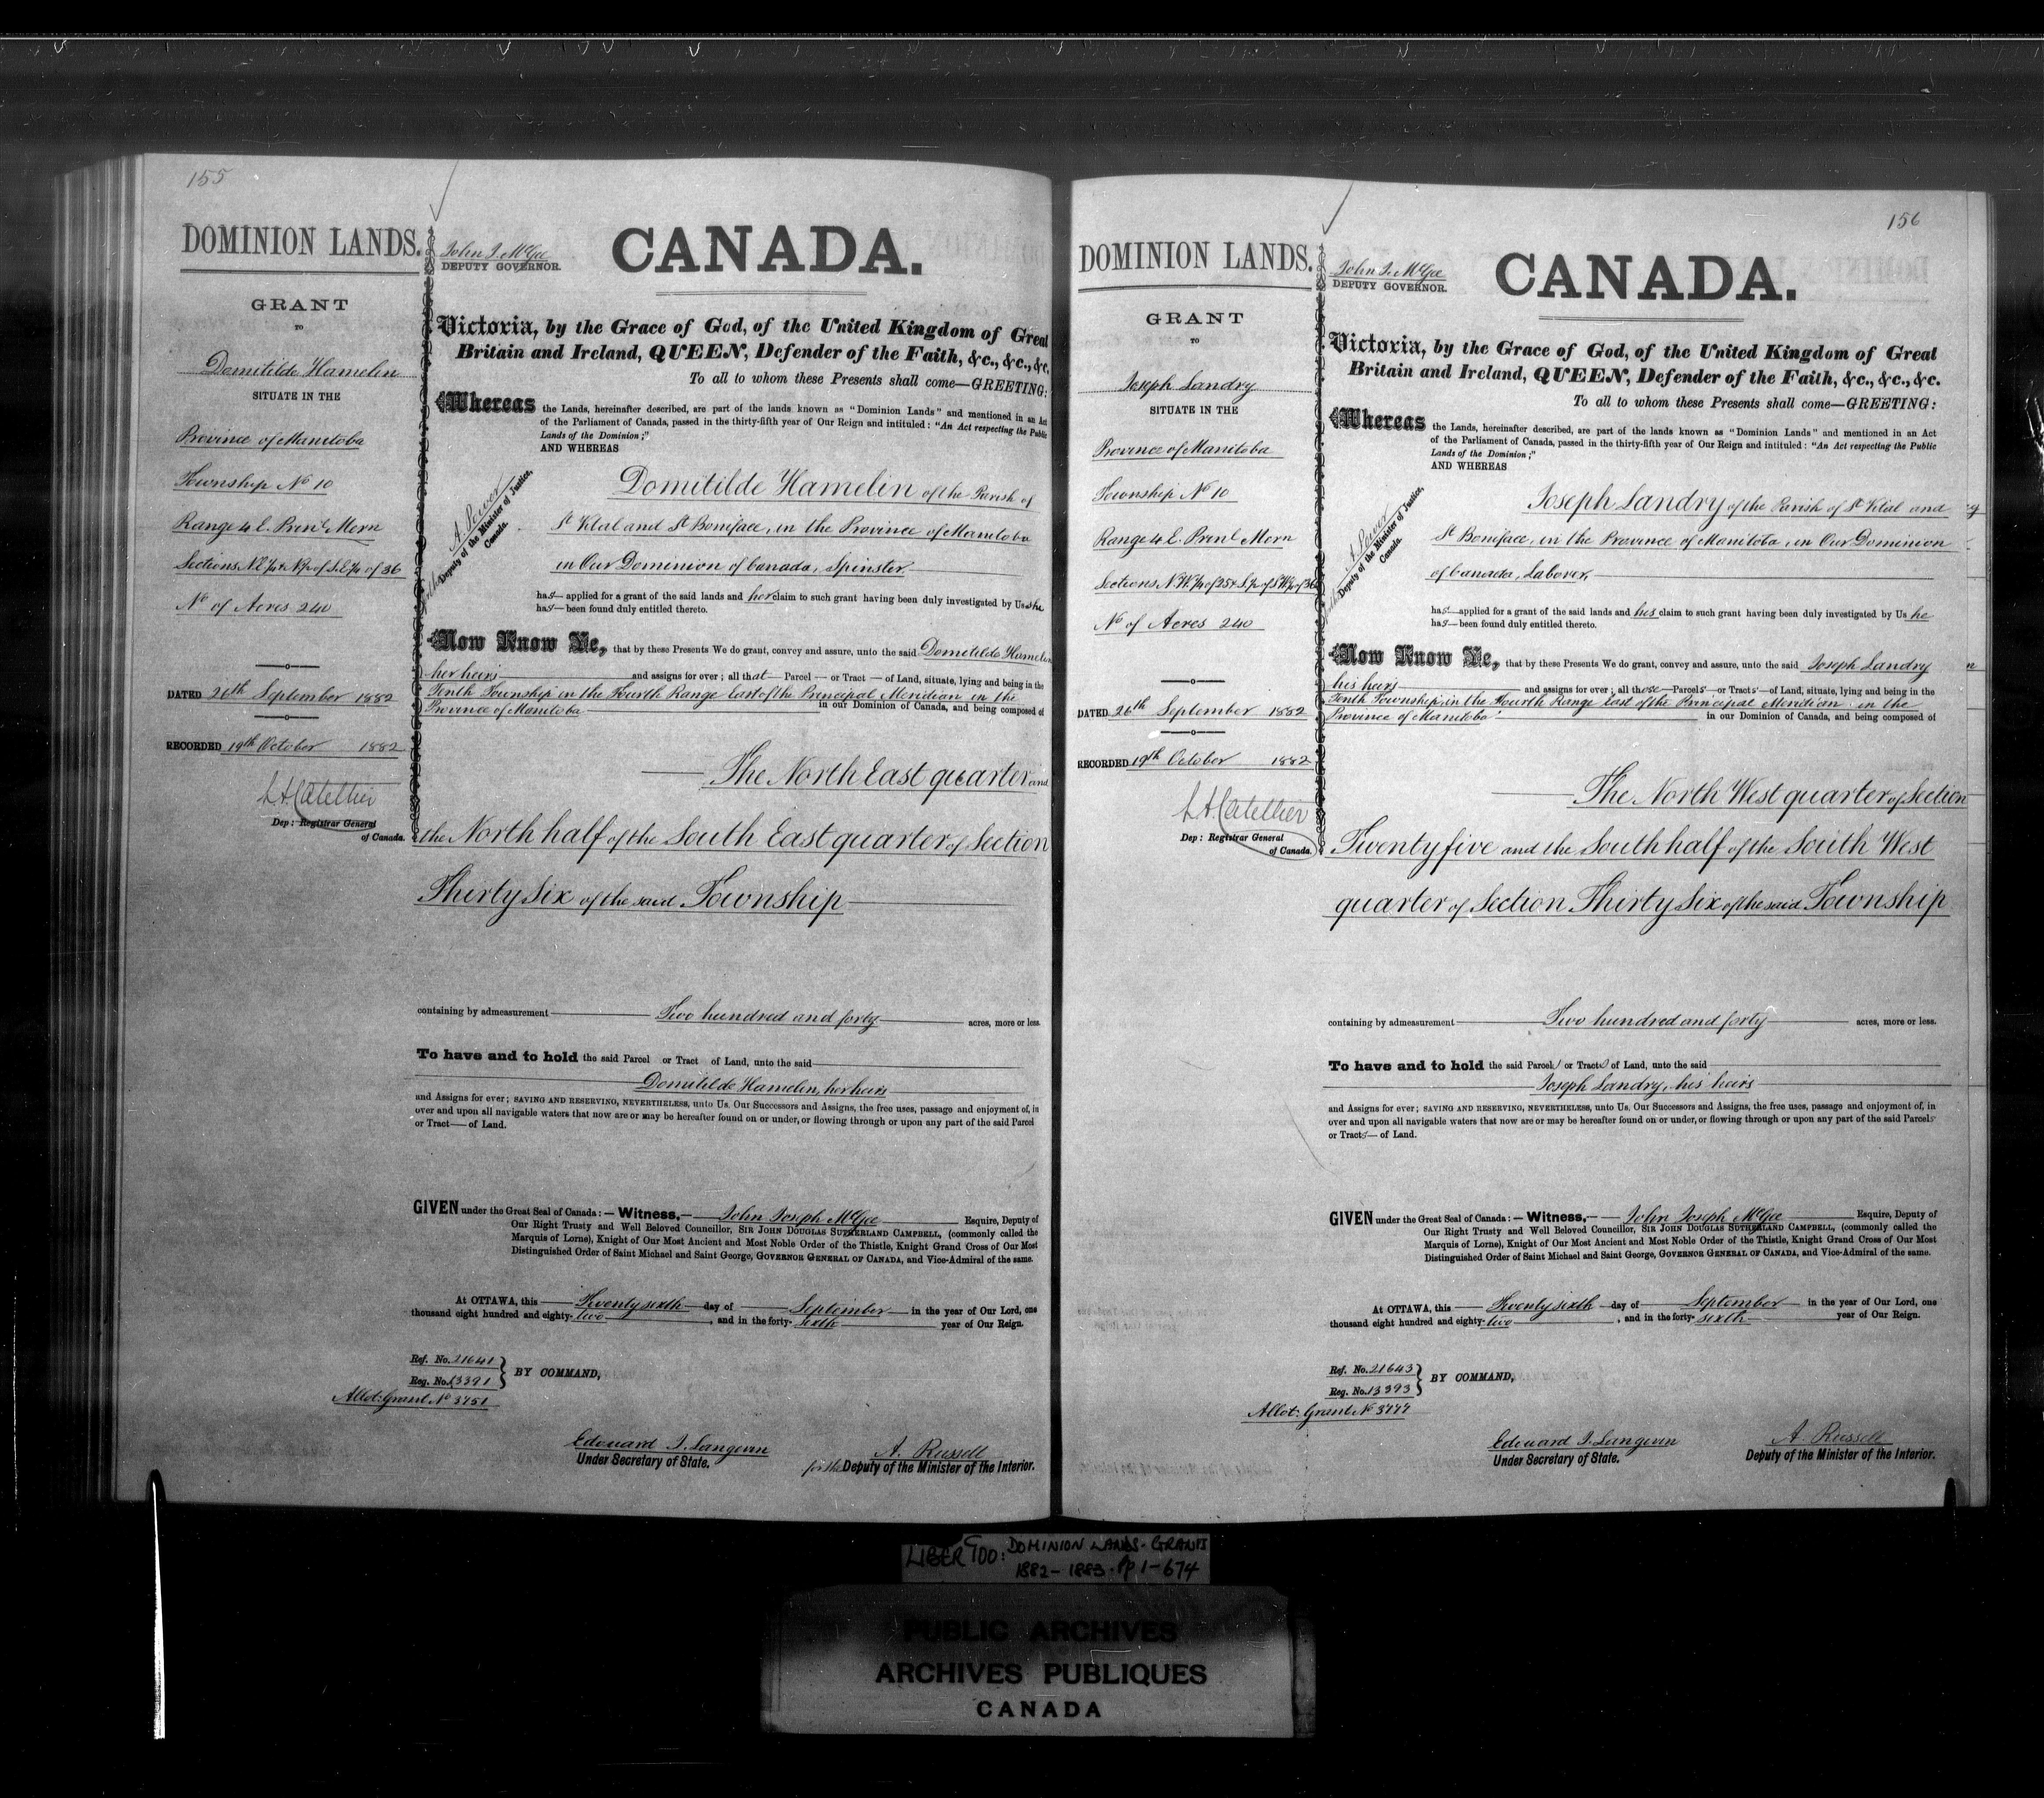 155
DOMINION LANDS.
GRANT
TO
Domitilde Hamelin
SITUATE IN THE
Province of Manitoba
Township No 10
Range 4 E. Prinl Mern
Sections N.E.¼ & N.½ of S.E.¼ of 36
No of Acres 240
DATED 26th September 1882
RECORDED 19th October 1882
Dep: Registrar General
of Canada.
John J. McGee
DEPUTY GOVERNOR.
CANADA.
Victoria, by the Grace of God, of the United Kingdom of Great
Britain and Ireland, QUEEN, Defender of the Faith, &c., &c., &c.
To all to whom these Presents shall come—GREETING:
Whereas the Lands, hereinafter described, are part of the lands known as "Dominion Lands" and mentioned in an Act
of the Parliament of Canada, passed in the thirty-fifth year of Our Reign and intituled: "An Act respecting the Public
Lands of the Dominion;"
AND WHEREAS
A. Power
Deputy of the Minister of Justice,
Canada.
Domitilde Hamelin of the Parish of
St Vital and St Boniface, in the Province of Manitoba
in Our Dominion of Canada, Spinster
has applied for a grant of the said lands and her claim to such grant having been duly investigated by Us she
has been found duly entitled thereto.
Now Know Ye, that by these Presents We do grant, convey and assure, unto the said Domitilde Hamelin
her heirs and assigns for over; all that Parcel or Tract of Land, situate, lying and being in the
Tenth Township in the Fourth Range East of the Principal Meridian in the
Province of Manitoba in our Dominion of Canada, and being composed of
The North East quarter and
the North half of the South East quarter of Section
Thirty Six of the said Township
containing by admeasurement Two hundred and forty acres, more or less.
To have and to hold the said Parcel or Tract of Land, unto the said
Domitilde Hamelin, her heirs
and Assigns for ever; SAVING AND RESERVING, NEVERTHELESS, unto Us. Our Successors and Assigns, the free uses, passage and enjoyment of, in
over and upon all navigable waters that now are or may be hereafter found on or under, or flowing through or upon any part of the said Parcel
or Tract of Land.
GIVEN under the Great Seal of Canada:— Witness,— John Joseph McGee Esquire, Deputy of
Our Right Trusty and Well Beloved Councillor, SIR JOHN DOUGLAS SUTHERLAND CAMPBELL, (commonly called the
Marquis of Lorne), Knight of Our Most Ancient and Most Noble Order of the Thistle, Knight Grand Cross of Our Most
Distinguished Order of Saint Michael and Saint George, GOVERNOR GENERAL OF CANADA, and Vice-Admiral of the same.
At OTTAWA, this Twenty sixth day of September in the year of Our Lord, one
thousand eight hundred and eighty-two, and in the forty-sixth year of Our Reign.
Ref. No. 21641
Reg. No. 13391
BY COMMAND,
Allot: Grant No 3751
Edouard J. Langevin
Under Secretary of State.
A. Russell
for the Deputy of the Minister of the Interior.
156
DOMINION LANDS.
GRANT
TO
Joseph Landry
SITUATE IN THE
Province of Manitoba
Township No 10
Range 4 E. Prinl Mern
Sections N.W.¼ of 25 & S.½ of S.W.¼ of 36
No of Acres 240
DATED 26th September 1882
RECORDED 19th October 1882
Dep: Registrar General
of Canada.
John J. McGee
DEPUTY GOVERNOR.
CANADA.
Victoria, by the Grace of God, of the United Kingdom of Great
Britain and Ireland, QUEEN, Defender of the Faith, &c., &c., &c.
To all to whom these Presents shall come—GREETING:
Whereas the Lands, hereinafter described, are part of the lands known as "Dominion Lands" and mentioned in an Act
of the Parliament of Canada, passed in the thirty-fifth year of Our Reign and intituled: "An Act respecting the Public
Lands of the Dominion;"
AND WHEREAS
A. Power
Deputy of the Minister of Justice,
Canada.
Joseph Landry of the Parish of St Vital and
St Boniface, in the Province of Manitoba, in Our Dominion
of Canada, Laborer,
has applied for a grant of the said lands and his claim to such grant having been duly investigated by Us he
has been found duly entitled thereto.
Now Know Ye, that by these Presents We do grant, convey and assure, unto the said Joseph Landry
his heirs and assigns for over; all those Parcels or Tracts of Land, situate, lying and being in the
Tenth Township, in the Fourth Range East of the Principal Meridian in the
Province of Manitoba in our Dominion of Canada, and being composed of
The North West quarter of Section
Twenty five and the South half of the South West
quarter of Section Thirty Six of the said Township
containing by admeasurement Two hundred and forty acres, more or less.
To have and to hold the said Parcels or Tracts of Land, unto the said
Joseph Landry, his heirs
and Assigns for ever; SAVING AND RESERVING, NEVERTHELESS, unto Us. Our Successors and Assigns, the free uses, passage and enjoyment of, in
over and upon all navigable waters that now are or may be hereafter found on or under, or flowing through or upon any part of the said Parcels
or Tracts of Land.
GIVEN under the Great Seal of Canada:— Witness,— John Joseph McGee Esquire, Deputy of
Our Right Trusty and Well Beloved Councillor, SIR JOHN DOUGLAS SUTHERLAND CAMPBELL, (commonly called the
Marquis of Lorne), Knight of Our Most Ancient and Most Noble Order of the Thistle, Knight Grand Cross of Our Most
Distinguished Order of Saint Michael and Saint George, GOVERNOR GENERAL OF CANADA, and Vice-Admiral of the same.
At OTTAWA, this Twenty sixth day of September in the year of Our Lord, one
thousand eight hundred and eighty-two, and in the forty-sixth year of Our Reign.
Ref. No. 21643
Reg. No. 13393
BY COMMAND,
Allot: Grant No
Edouard J. Langevin
Under Secretary of State.
A. Russell
Deputy of the Minister of the Interior.
LIBER 900: DOMINION LANDS. GRANTS
1882-1883. pp 1-674
PUBLIC ARCHIVES
ARCHIVES PUBLIQUES
CANADA